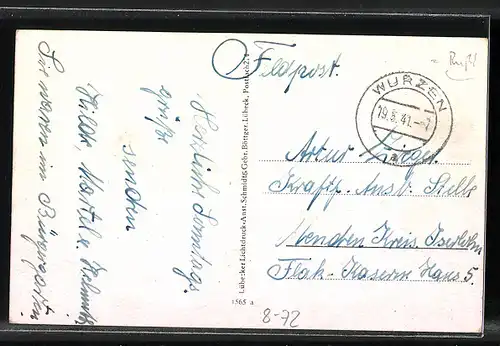 Feldpost.
WURZEN
19.5.41.-7
Artur
Kraftf. Ausb. Stelle
Menden Kreis Iserlohn
Flak-Kaserne Haus 5.
Herzliche Sonntags-
grüße
senden
Hilde, Martel u. Helmut
Wir waren im Bürgergarten.
Lübecker Lichtdruck-Anst. Schmidt & Gebr. Böttger, Lübeck, Postfach 2
1565 a
8-72